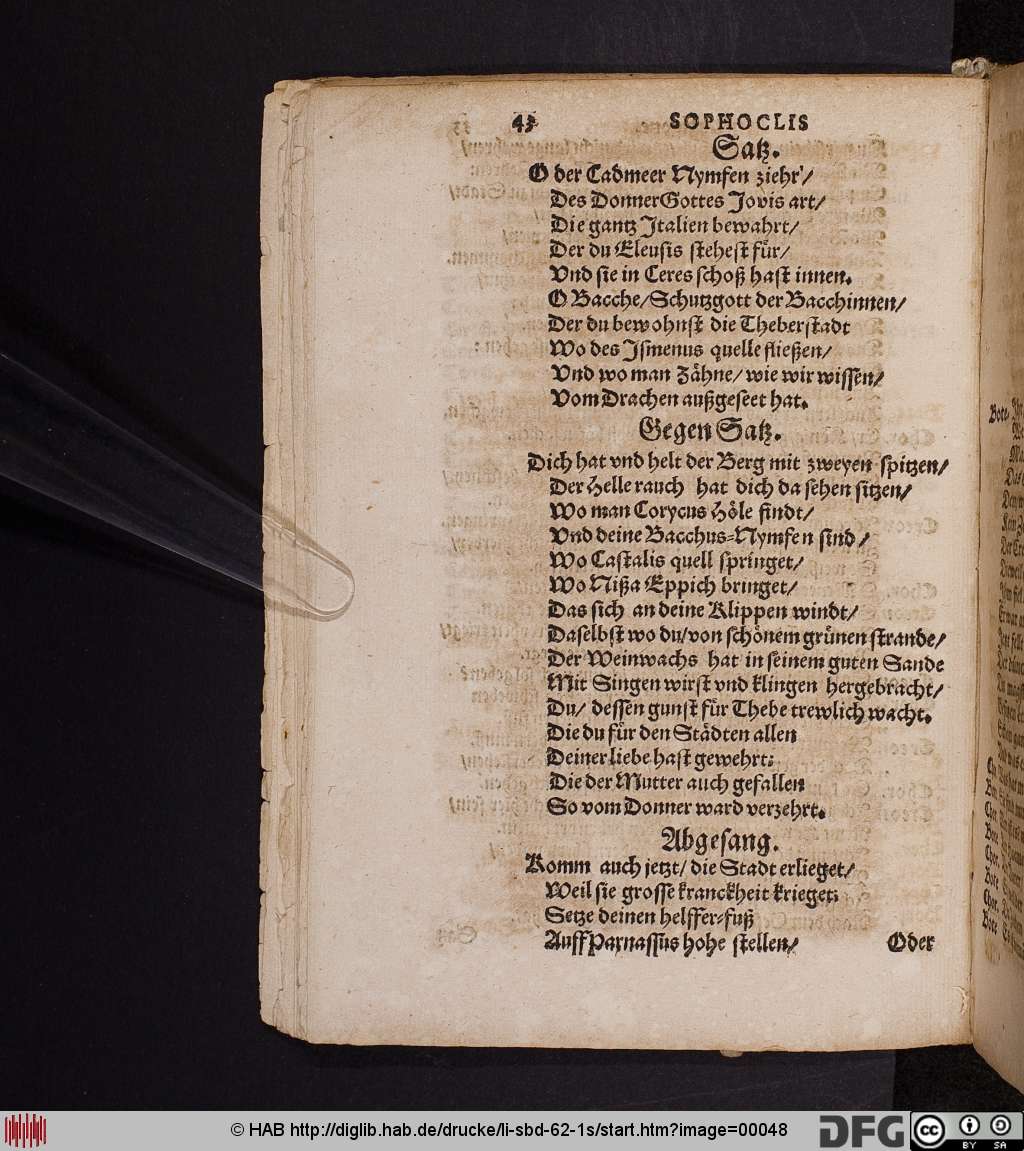 43 SOPHOCLIS
Satz.
O der Cadmeer Nymfen ziehr'/
Des DonnerGottes Jovis art/
Die gantz Italien bewahrt/
Der du Eleusis stehest für/
Vnd sie in Ceres schoß hast innen.
O Bacche/Schutzgott der Bacchinnen/
Der du bewohnst die Theberstadt
Wo des Ismenus quelle fließen/
Vnd wo man Zähne/ wie wir wissen/
Vom Drachen außgeseet hat.
Gegen Satz.
Dich hat vnd helt der Berg mit zweyen spitzen/
Der Helle rauch hat dich da sehen sitzen/
Wo man Corycus Höle findt/
Vnd deine Bacchus-Nymfen sind/
Wo Castalis quell springet/
Wo Nißa Eppich bringet/
Das sich an deine Klippen windt/
Daselbst wo du/von schönem grünen strande/
Der Weinwachs hat in seinem guten Sande
Mit Singen wirst vnd klingen hergebracht/
Du/ dessen gunst für Thebe trewlich wacht.
Die du für den Städten allen
Deiner liebe hast gewehrt:
Die der Mutter auch gefallen
So vom Donner ward verzehrt.
Abgesang.
Komm auch jetzt/ die Stadt erlieget/
Weil sie grosse kranckheit krieget:
Setze deinen helffer-fuß
Auff Parnassus hohe stellen/ Oder
© HAB http://diglib.hab.de/drucke/li-sbd-62-1s/start.htm?image=00048
DFG
cc BY SA